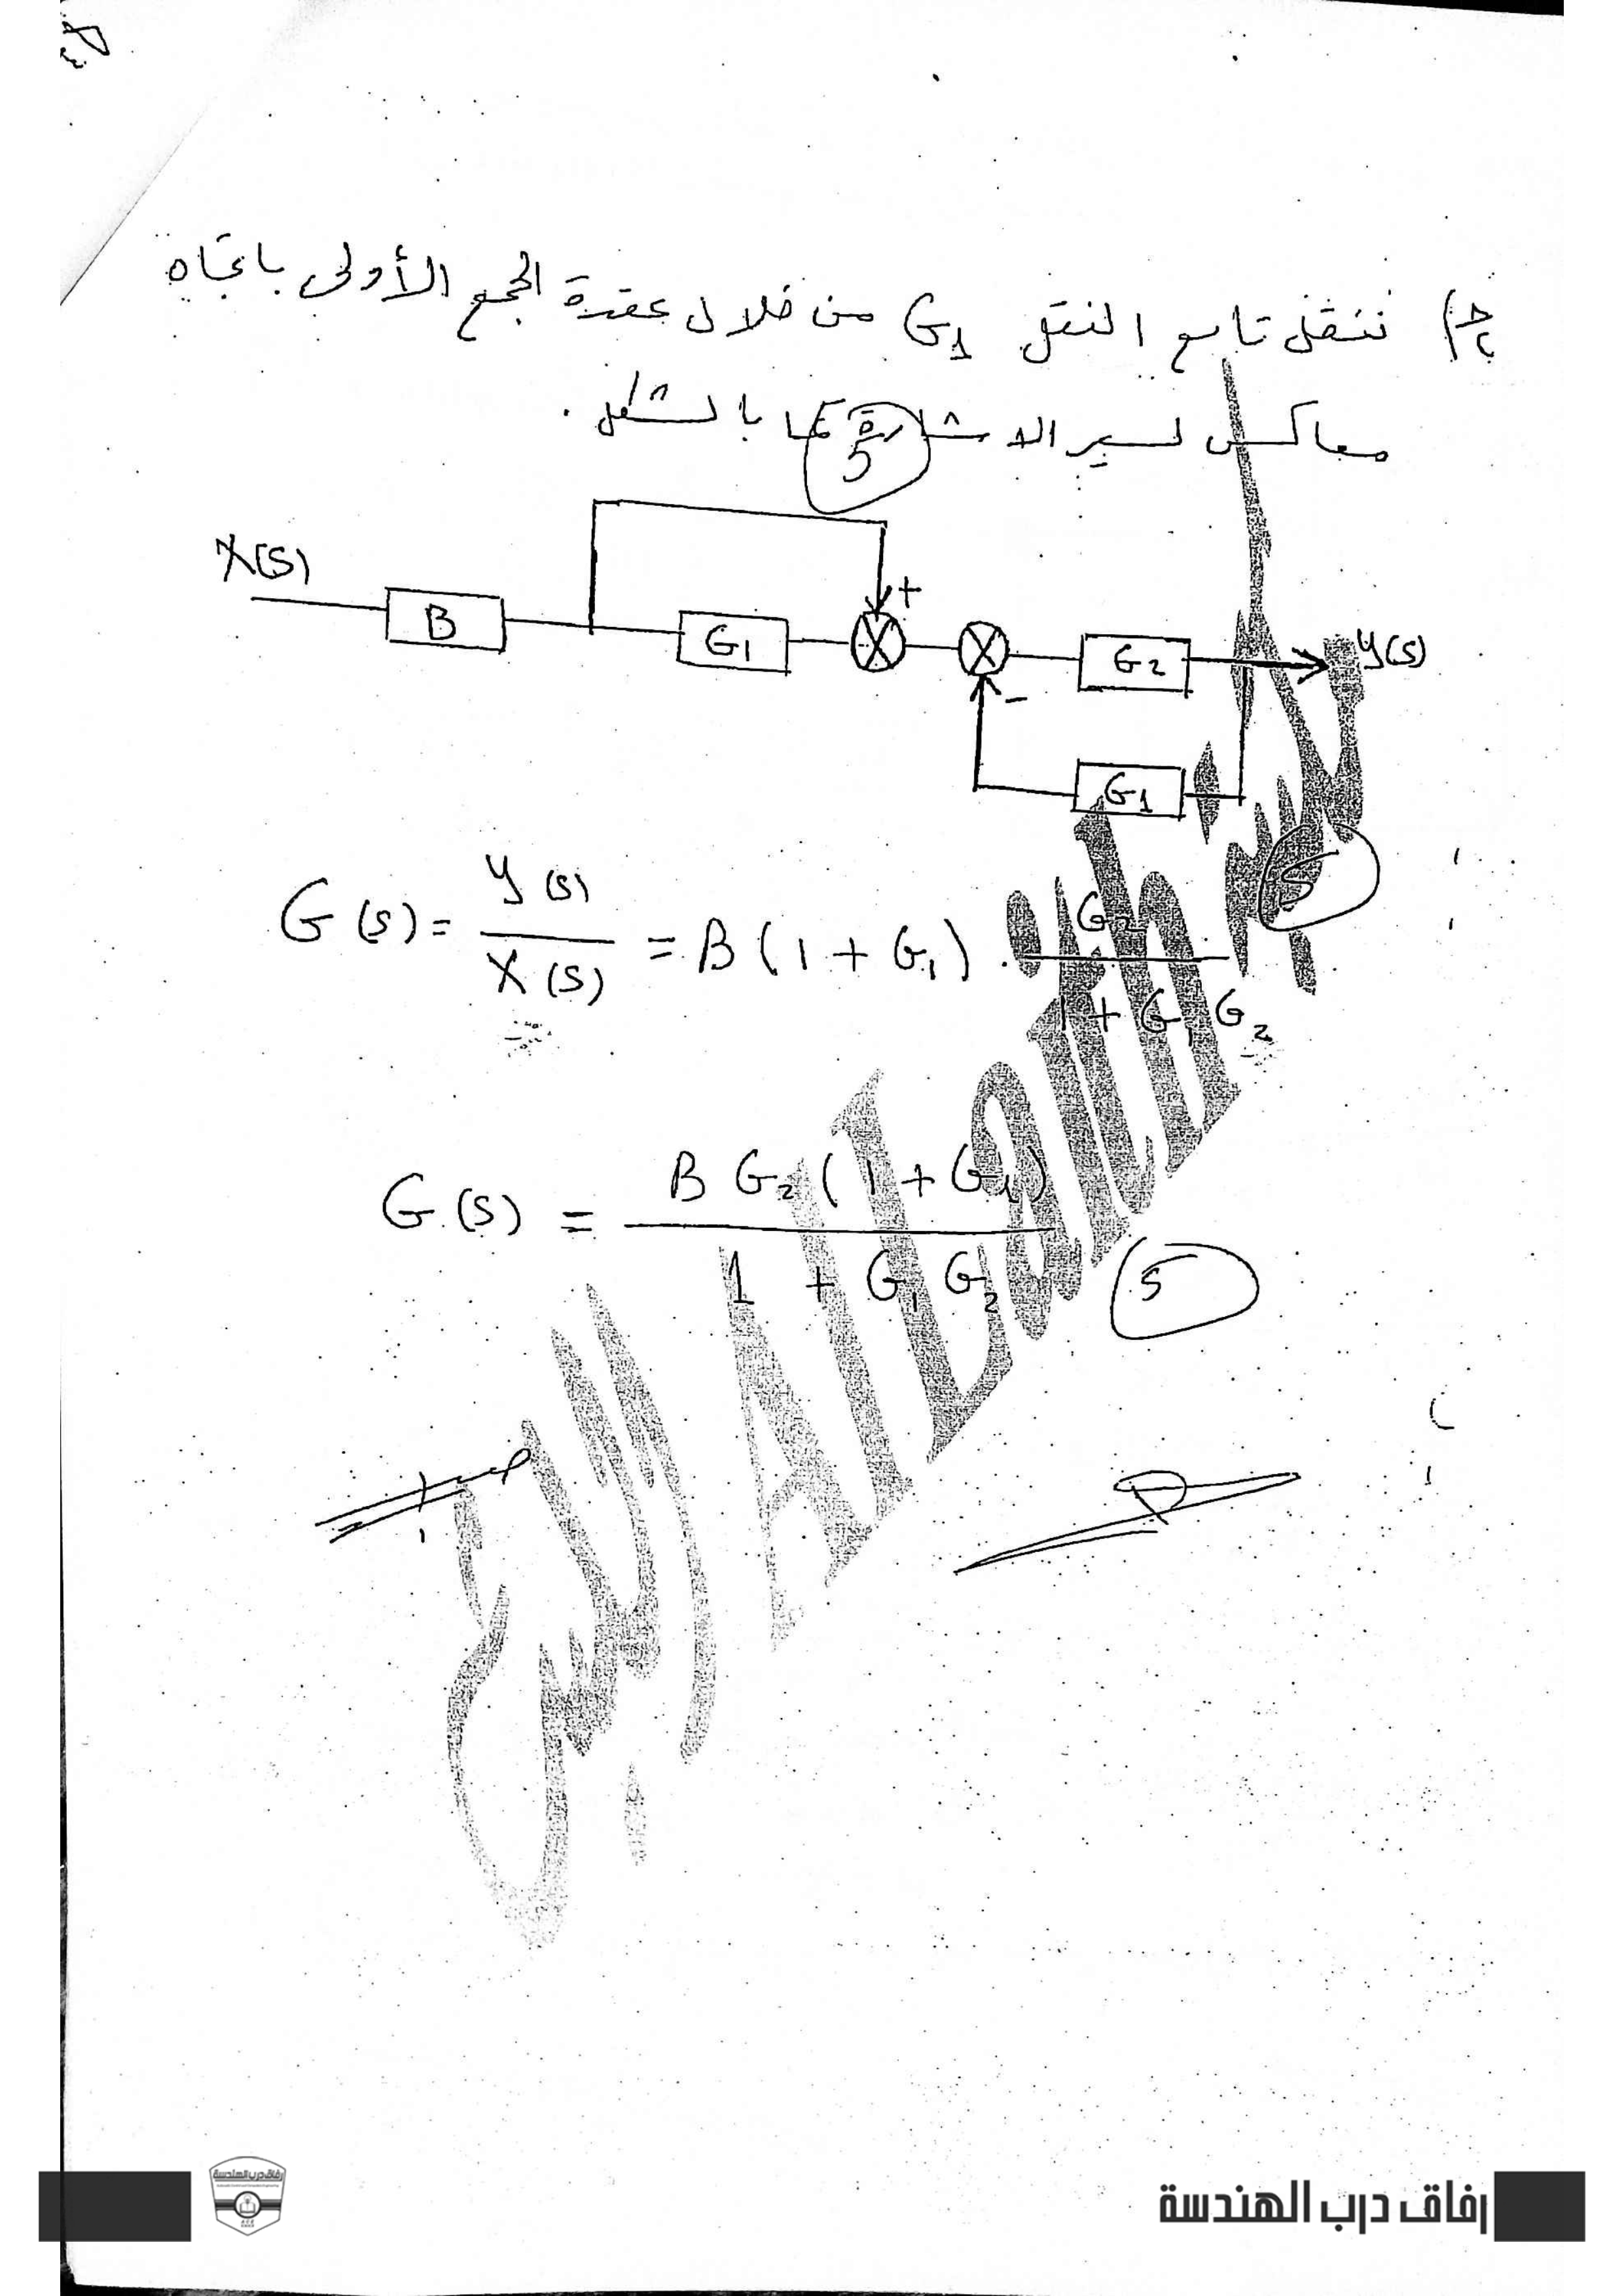 جـ٢) ننقل تابع النقل G1 من خلال عقدة الجمع الأولى باتجاه
معاكس لسير الاشارة كما بالشكل .
5
X(s)
B
G1
+
G2
Y(s)
-
G1
5
G(s) = Y(s) / X(s) = B(1 + G1) . G2 / 1 + G1 G2
G(s) = B G2 (1 + G1) / 1 + G1 G2
5
رفاق درب الهندسة
رفاق درب الهندسة